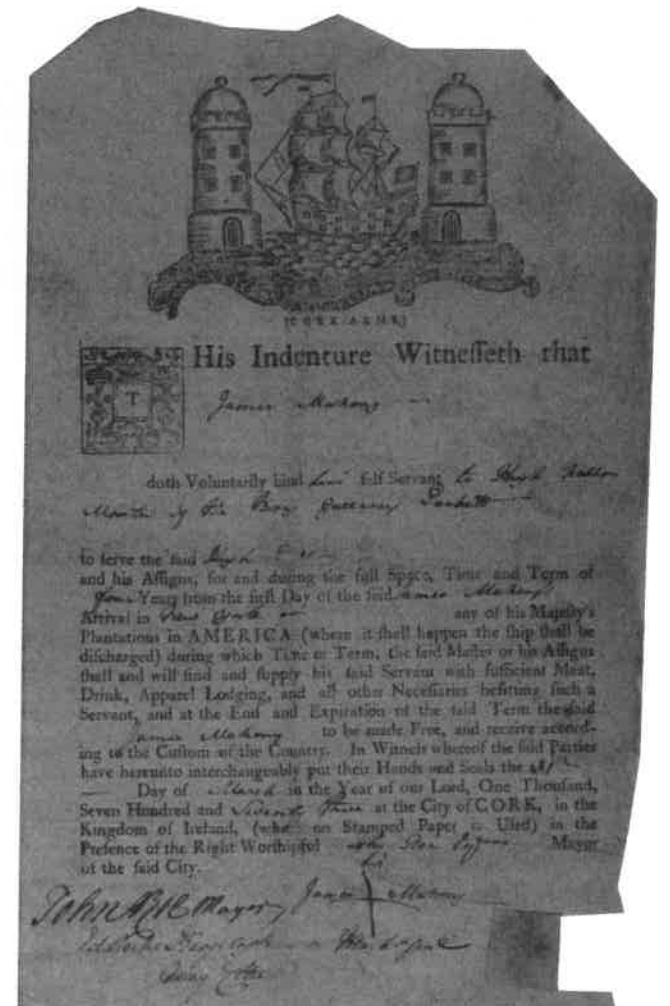 [CORK ARMS]
THis Indenture Witnesseth that
James Mahony
doth Voluntarily bind him self Servant to Hugh
Master of the Brig Galloway
to serve the said Hugh
and his Assigns, for and during the full Space, Time and Term of
four Years from the first Day of the said James Mahony's
Arrival in New York or any of his Majesty's
Plantations in AMERICA (where it shall happen the ship shall be
discharged) during which Time or Term, the said Master or his Assigns
shall and will find and supply his said Servant with sufficient Meat,
Drink, Apparel Lodging, and all other Necessaries befitting such a
Servant, and at the End and Expiration of the said Term the said
James Mahony to be made Free, and receive accord-
ing to the Custom of the Country. In Witness whereof the said Parties
have hereunto interchangeably put their Hands and Seals the
Day of March in the Year of our Lord, One Thousand,
Seven Hundred and Seventy three at the City of CORK, in the
Kingdom of Ireland, (where no Stamped Paper is Used) in the
Presence of the Right Worshipful John Roe Esquire Mayor
of the said City.
his
John Roe Mayor James Mahony
Mark